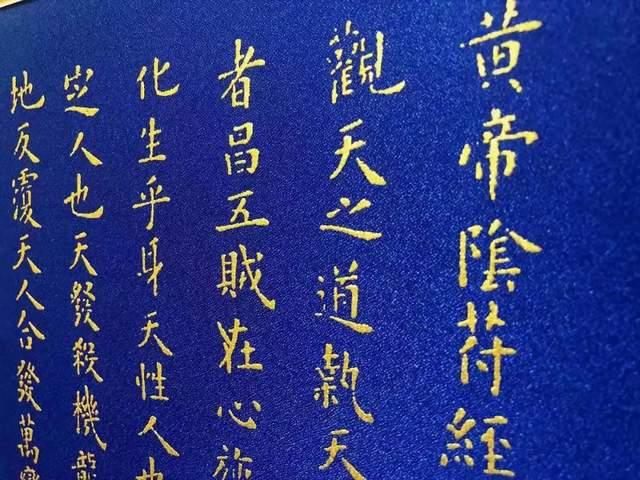 黃帝陰苻經
觀天之道執天
者昌五賊在心施
化生乎身天性人也
定人也天發殺機龍
地反覆天人合發萬變